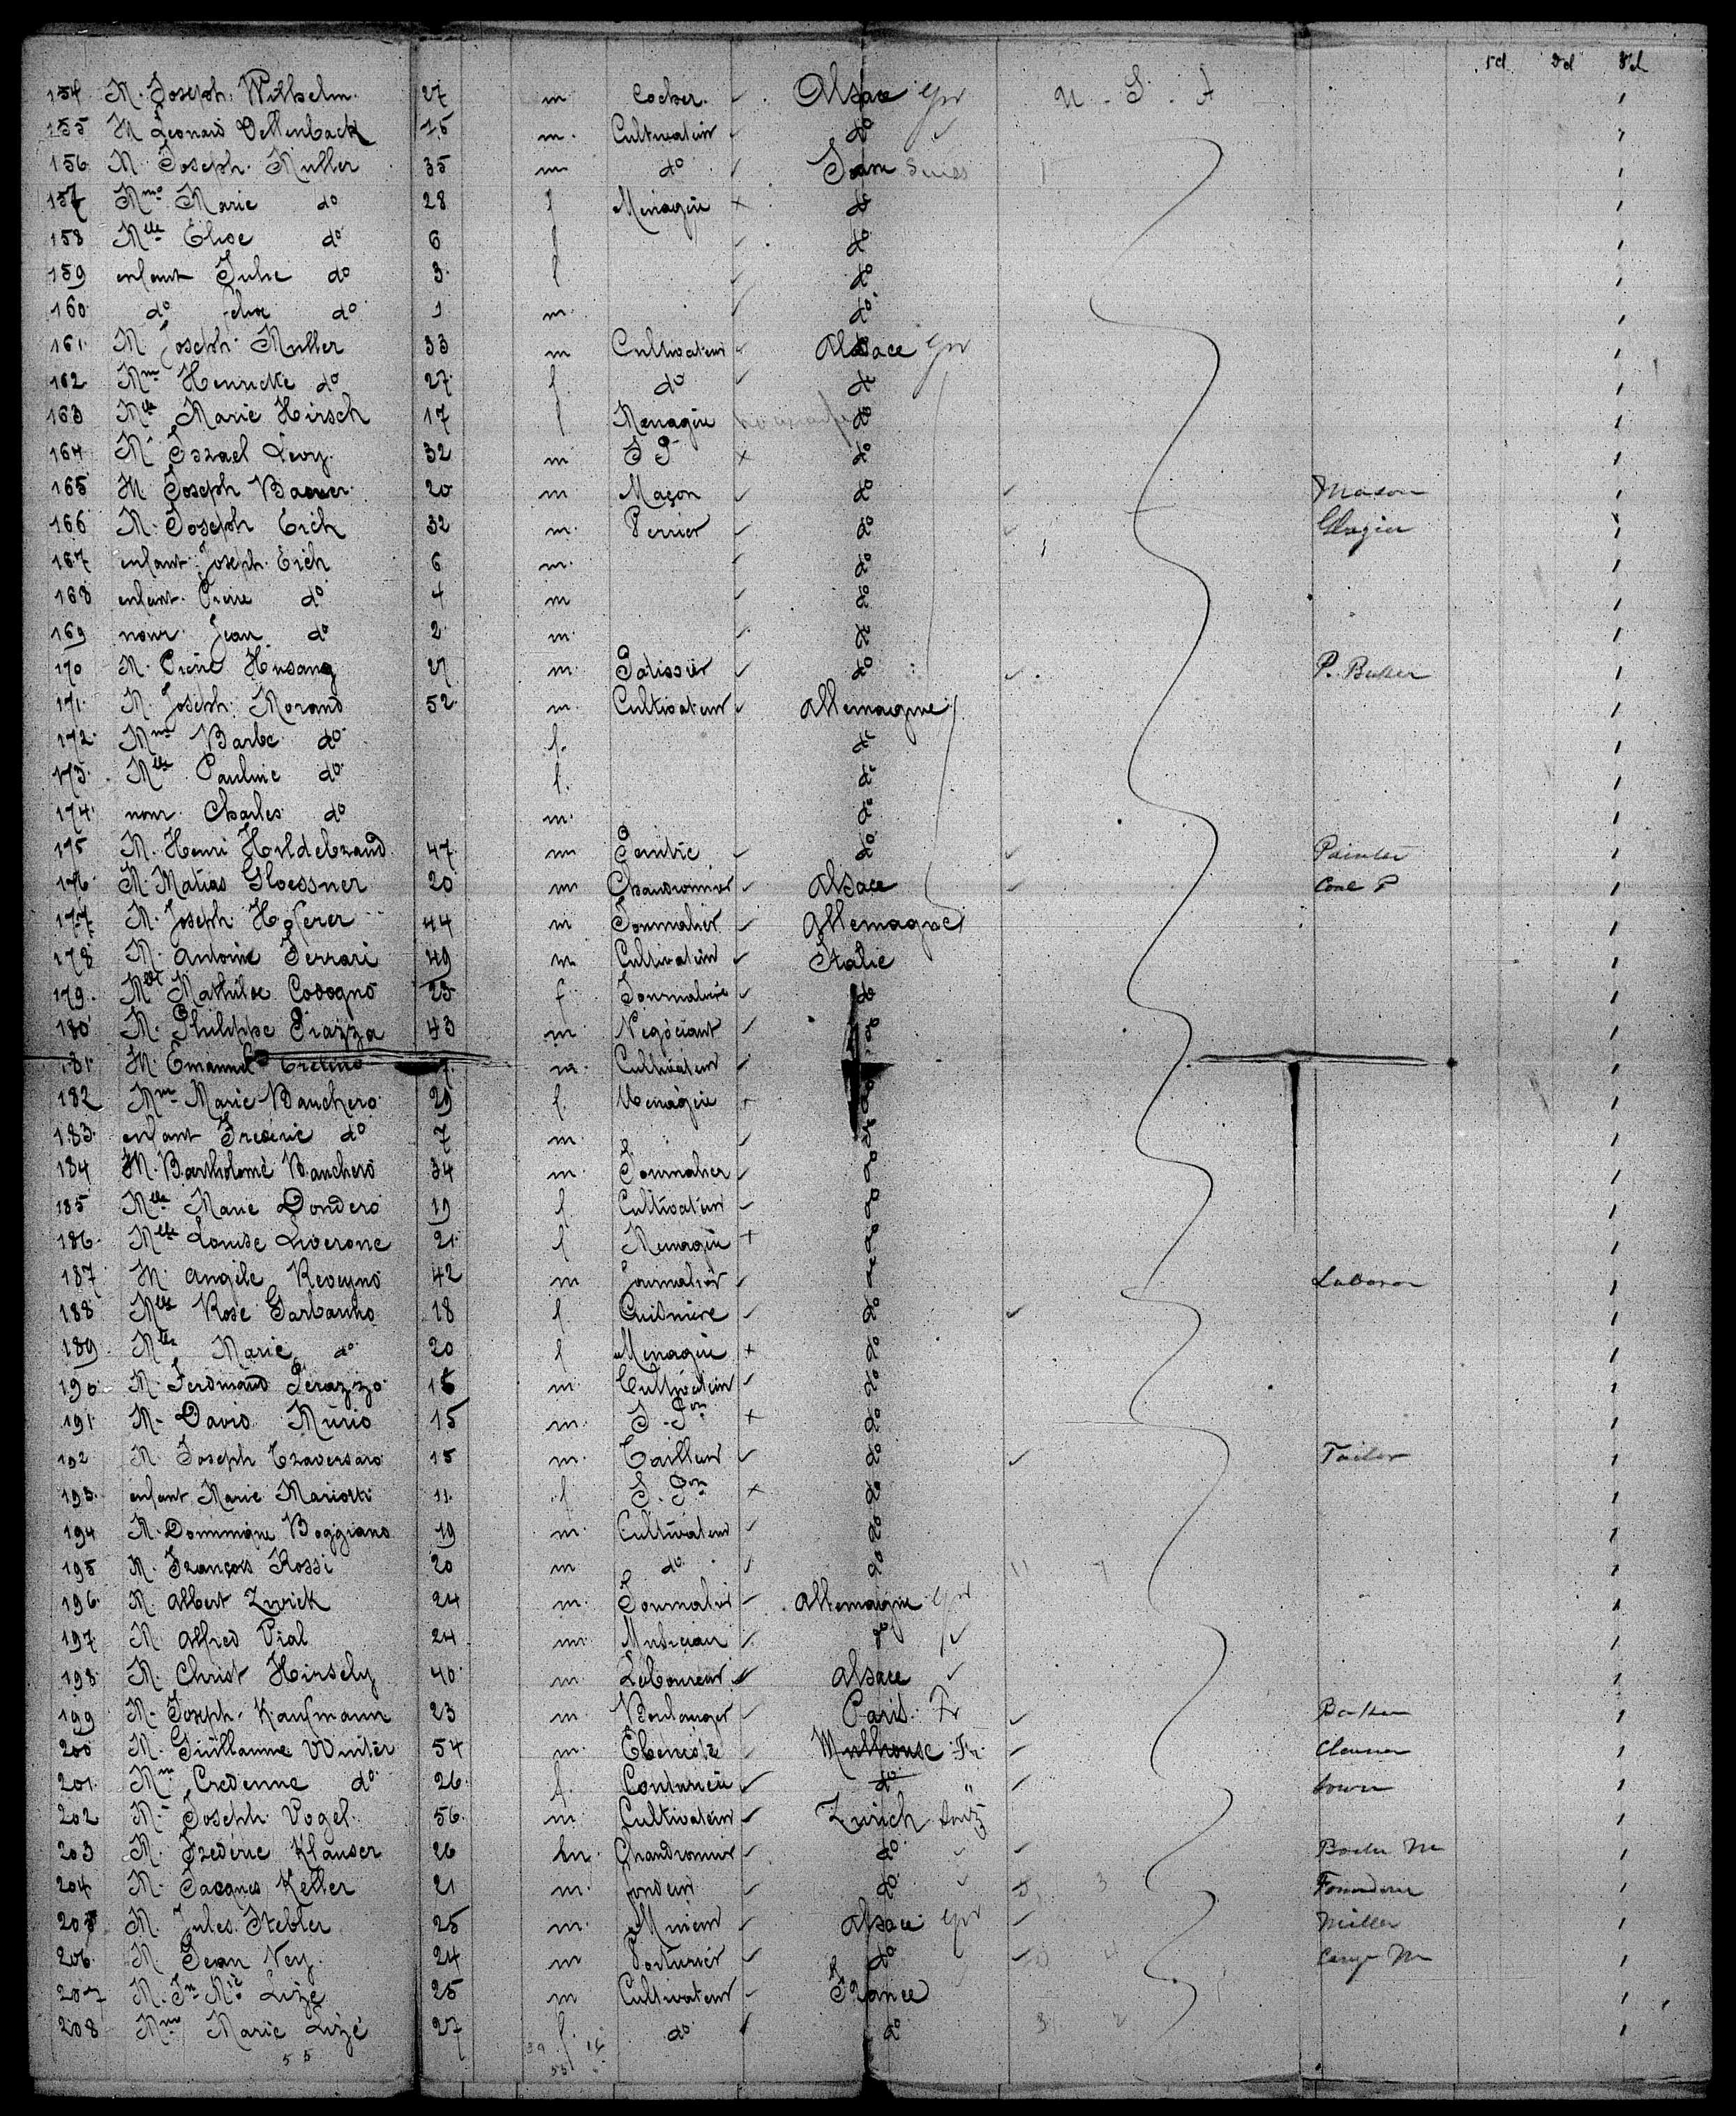 1cl 2cl 3cl
154 M. Joseph Wilhelm 27 m Cocher Alsace Ger U. S. A
155 M Léonard Vettenback 15 m. Cultivateur do
156 M. Joseph Muller 35 m do Suiss
157 Mme Marie do 28 f Ménagère do
158 Mlle Elise do 6 f do
159 enfant Julie do 3 f do
160 do do 1 m. do
161 M. Joseph Muller 33 m Cultivateur Alsace Ger
162 Mme Henricke do 27 f. do do
163 Mlle Marie Hirsch 17 f Ménagère do
164 M Iszael Levy 32 m S P do
165 M Joseph Bauer 20 m. Maçon do Mason
166 M. Joseph Erich 32 m. Verrier do Glazier
167 enfant Joseph Erich 6 m. do
168 enfant Pierre do 4 m do
169 nour. Jean do 2 m. do
170 M. Pierre Husang 27 m. Patissier do P. Baker
171 M. Joseph Morand 52 m. Cultivateur Allemagne
172 Mme Barbe do f. do
173 Mlle Pauline do f. do
174 nour Charles do m. do
175 M. Henri Hildebrand 47 m Peintre do Painter
176 M. Matias Gloessner 20 m Chaudronnier Alsace
177 M. Joseph Hoferer 44 m Journalier Allemagne
178 M. Antoine Ferrari 49 m Cultivateur Italie
179 Mlle Mathilde Codogno 23 f. Journalière do
180 M. Philippe Piazza 43 m Négociant do
181 M. Emanuel m. Cultivateur
182 Mme Marie Banchero 29 f. Ménagère do
183 enfant Frédéric do 7 m. do
184 M. Bartholomé Banchero 34 m. Journalier do
185 Mlle Marie Dondero 19 f. Cultivateur do
186 Mlle Louise Liverone 21 f Ménagère do
187 M. Angèle 42 m Journalier do Laborer
188 Mlle Rose Garbarino 18 f. Cuisinière do
189 Mlle Marie do 20 f Ménagère do
190 M. Ferdinand Perazzo m. Cultivateur do
191 M. David Murio 15 m. S. Pon do
192 M. Joseph Traversaro 15 m. Tailleur do Tailor
193 enfant Marie Mariotti 11 f S. Pon do
194 M. Dominique Boggiano 19 m. Cultivateur do
195 M. François Rossi 20 m do do
196 M. Albert Zwick 24 m. Journalier Allemagne Ger
197 M. Alfred Vial 24 m. Musicien do
198 M. Christ Hirsely 40 m Laboureur Alsace
199 M. Joseph Kaufmann 23 m. Boulanger Paris Fr Baker
200 M. Guillaume Winter 54 m. Ebéniste Mulhouse Fr.
201 Mme Credenne do 26 f. Couturière do "
202 M. Joseph Vogel 56 m. Cultivateur Zurich Switz
203 M. Frédéric Klauser 26 m. Chaudronnier do Boiler M
204 M. Jacques Keller 21 m. fondeur do
205 M. Jules Stebler 25 m. Alsace Ger Miller
206 M. Jean Ney 24 m do
207 M. Jn Mie Lizé 25 m Cultivateur France
208 Mme Marie Lizé 27 f. do do
55